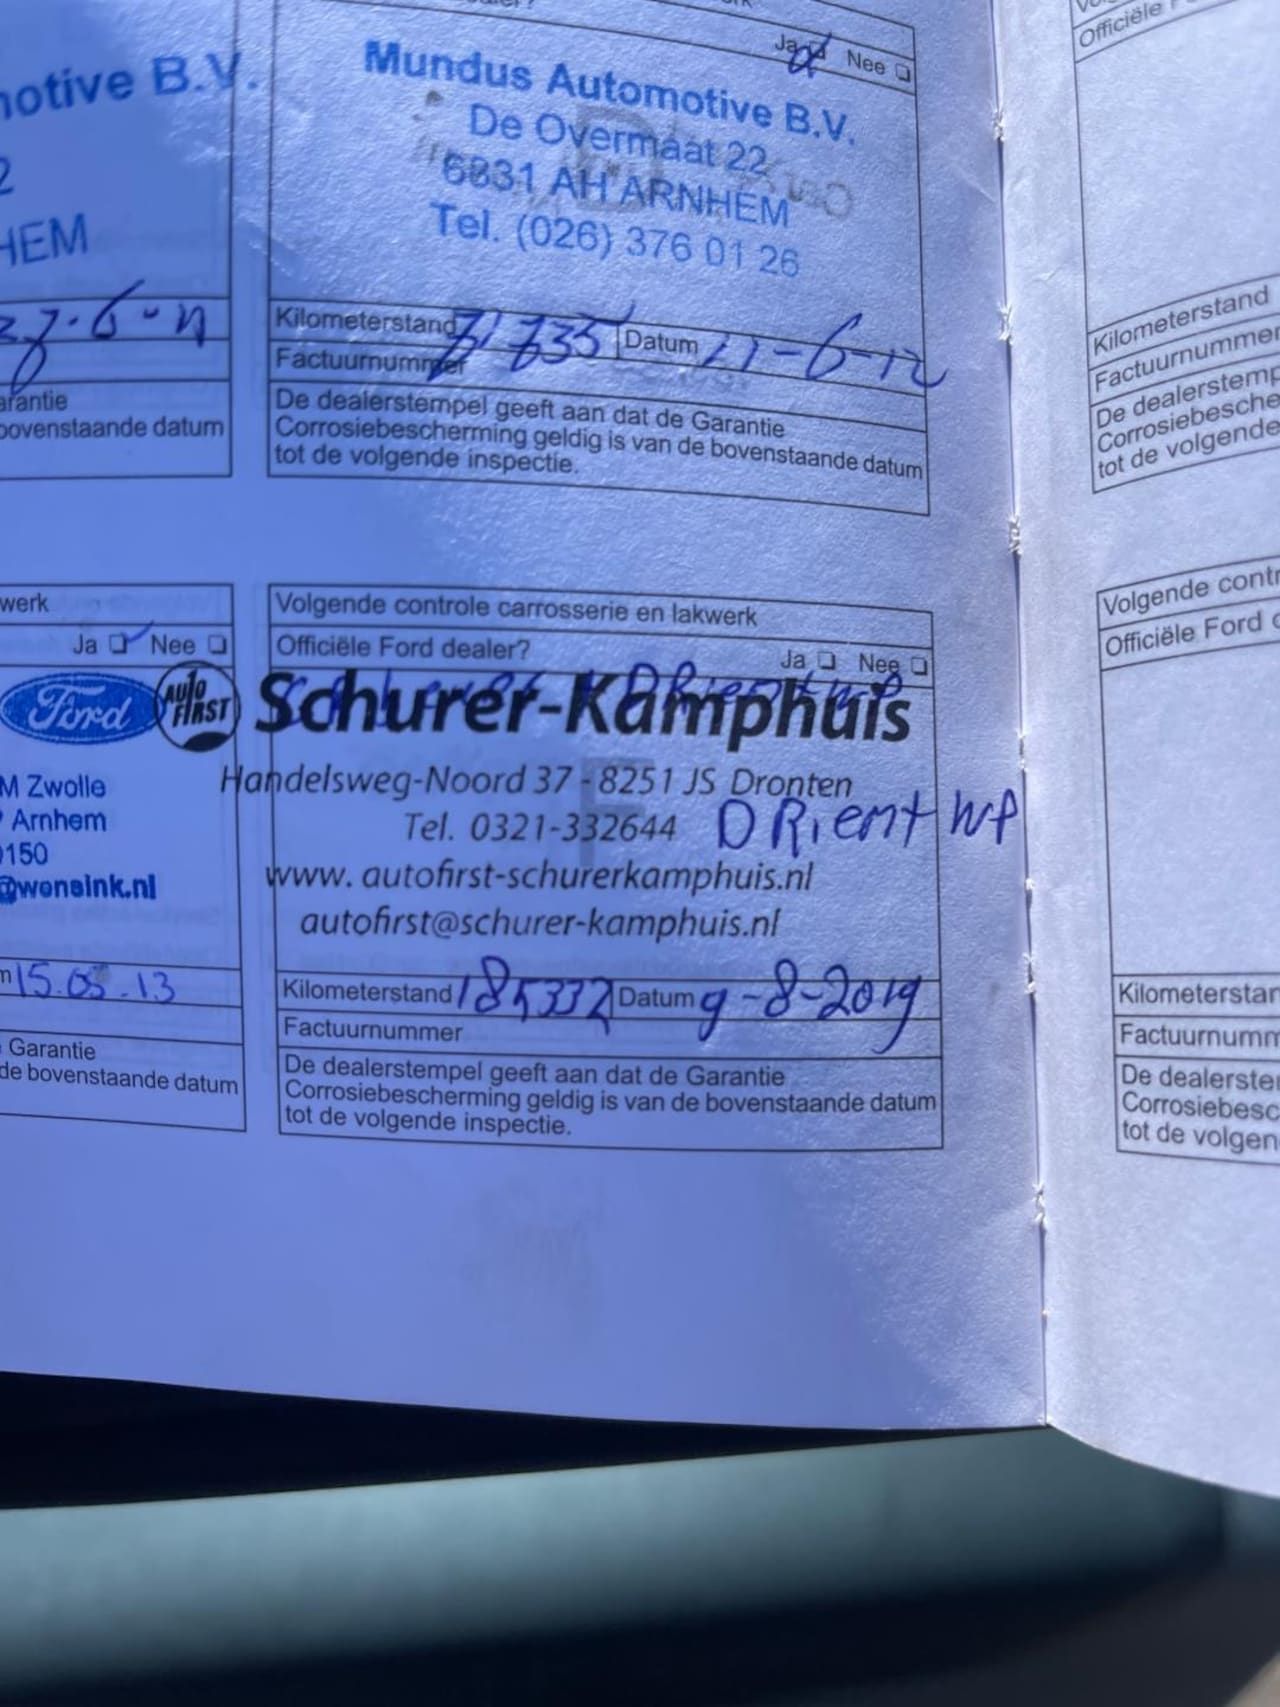 Ja Nee
Mundus Automotive B.V.
De Overmaat 22
6831 AH ARNHEM
Tel. (026) 376 01 26
Kilometerstand 71735 Datum -6-12
Factuurnummer
De dealerstempel geeft aan dat de Garantie
Corrosiebescherming geldig is van de bovenstaande datum
tot de volgende inspectie.
otive B.V.
2
HEM
arantie
bovenstaande datum
werk
Ja Nee
Ford
AUTO FIRST
M Zwolle
Arnhem
0150
@wensink.nl
15.05.13
Garantie
de bovenstaande datum
Volgende controle carrosserie en lakwerk
Officiële Ford dealer?
Ja Nee
Schurer-Kamphuis
Handelsweg-Noord 37 - 8251 JS Dronten
Tel. 0321-332644 DRient WP
www. autofirst-schurerkamphuis.nl
autofirst@schurer-kamphuis.nl
Kilometerstand 185332 Datum 9-8-2019
Factuurnummer
De dealerstempel geeft aan dat de Garantie
Corrosiebescherming geldig is van de bovenstaande datum
tot de volgende inspectie.
Officiële
Kilometerstand
Factuurnumme
De dealerstemp
Corrosiebesche
tot de volgende
Volgende contr
Officiële Ford
Kilometerstan
Factuurnumm
De dealerste
Corrosiebesc
tot de volgen